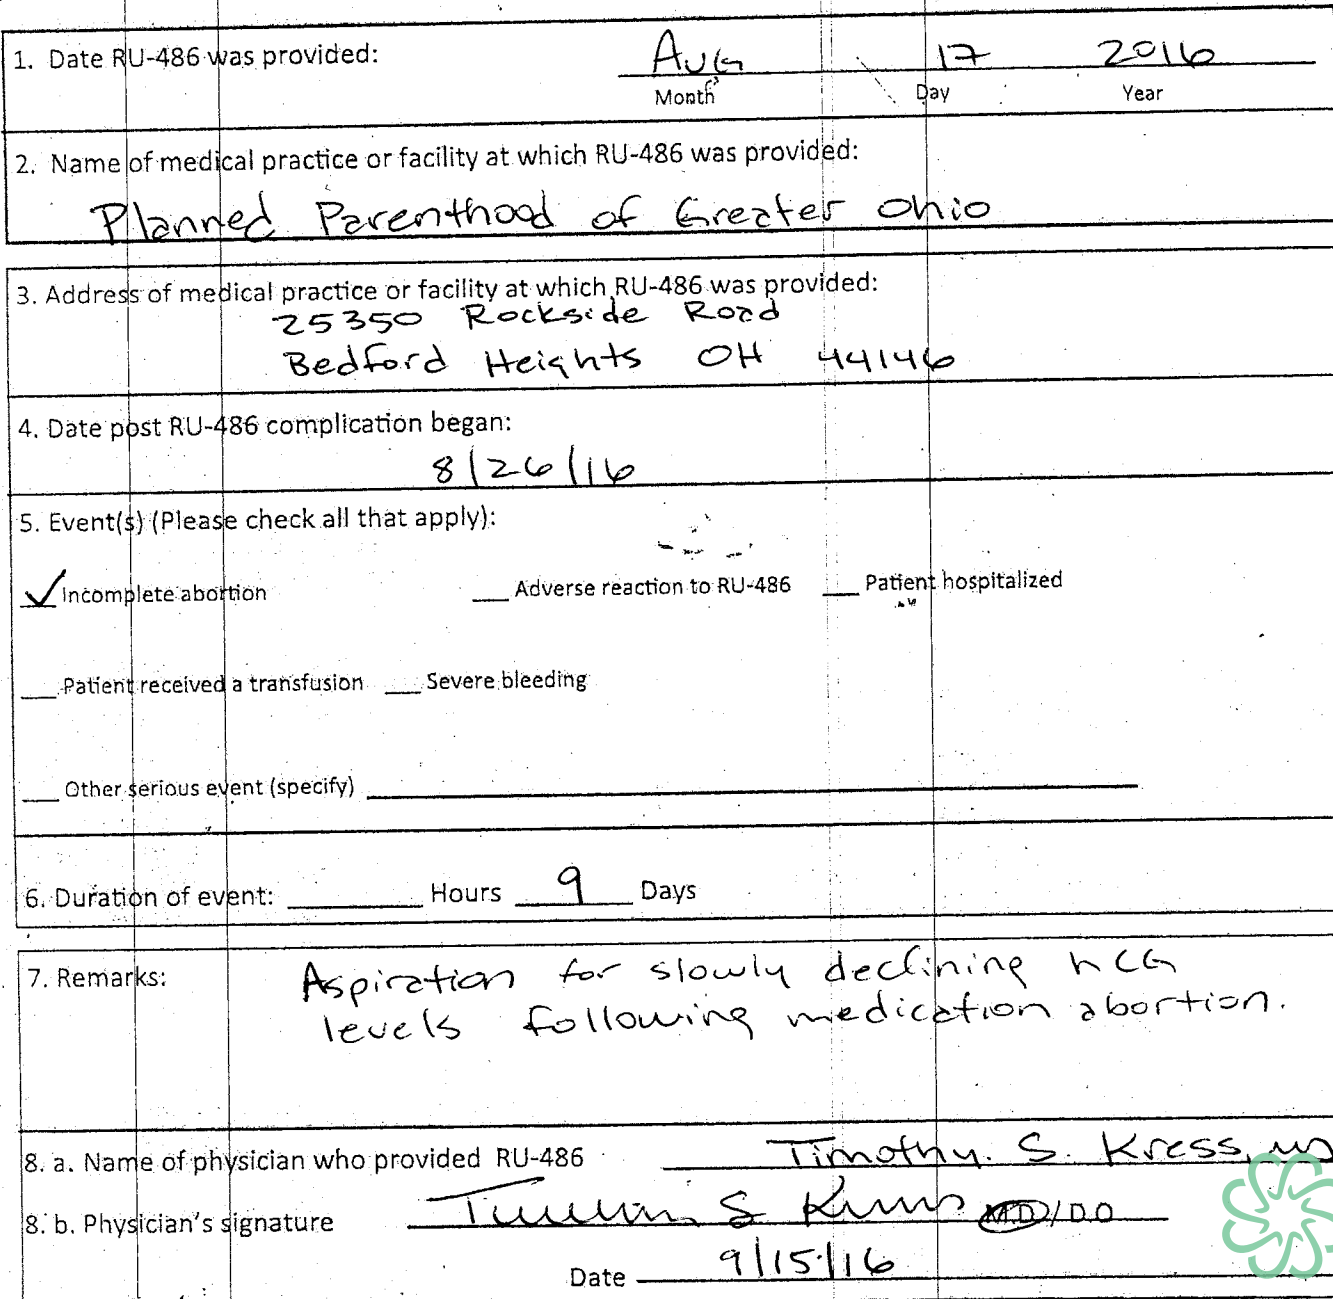 1. Date RU-486 was provided: Aug 17 2016
Month Day Year
2. Name of medical practice or facility at which RU-486 was provided:
Planned Parenthood of Greater Ohio
3. Address of medical practice or facility at which RU-486 was provided:
25350 Rockside Road
Bedford Heights OH 44146
4. Date post RU-486 complication began:
8/26/16
5. Event(s) (Please check all that apply):
✓ Incomplete abortion ___ Adverse reaction to RU-486 ___ Patient hospitalized
___ Patient received a transfusion ___ Severe bleeding
___ Other serious event (specify) ___
6. Duration of event: ___ Hours 9 Days
7. Remarks: Aspiration for slowly declining hCG
levels following medication abortion.
8. a. Name of physician who provided RU-486 Timothy. S. Kress, MD
8. b. Physician's signature Timothy S Kress MD/DO
Date 9/15/16